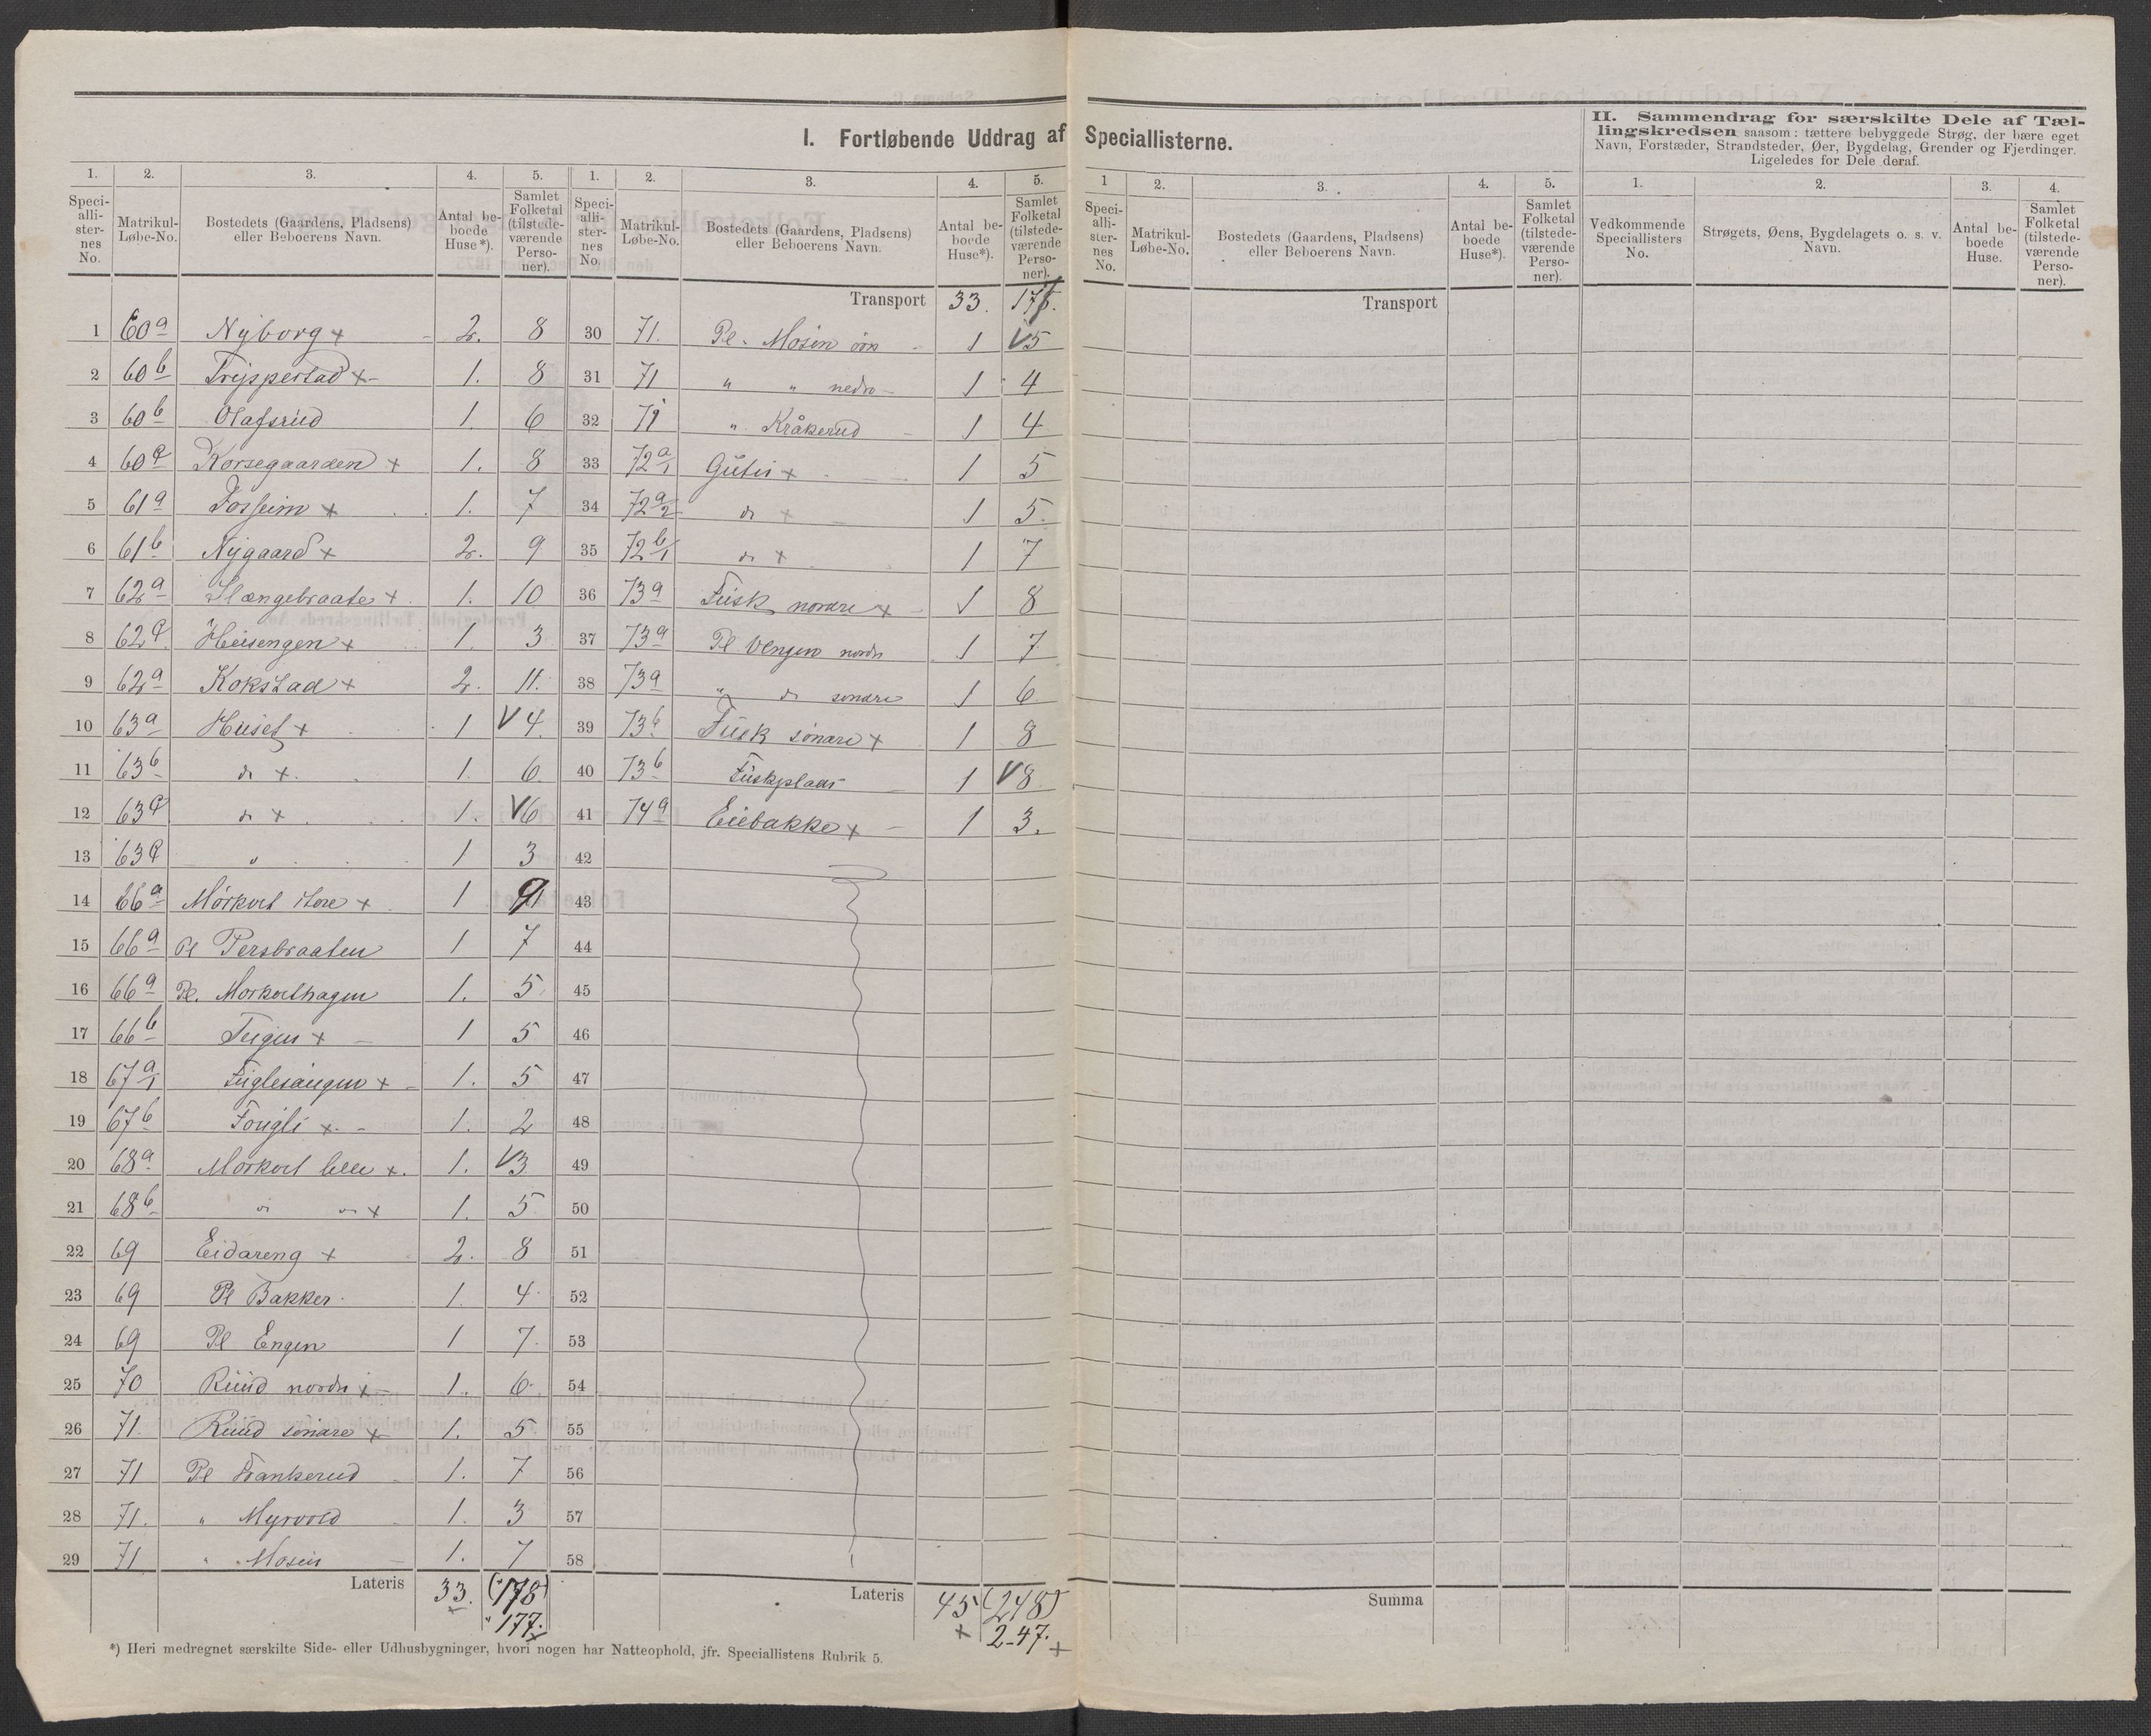 I. Fortløbende Uddrag af Speciallisterne.
II. Sammendrag for særskilte Dele af Tæl-
lingskredsen saasom: tættere bebyggede Strøg, der bære eget
Navn, Forstæder, Strandsteder, Øer, Bygdelag, Grender og Fjerdinger.
Ligeledes for Dele deraf.
1. 2. 3. 4. 5.
Speci-alli-ster-nes No. Matrikul-Løbe-No. Bostedets (Gaardens, Pladsens) eller Beboerens Navn. Antal be-boede Huse*). Samlet Folketal (tilstede-værende Perso-ner).
1 60a Nyborg + 2. 8
2 60b Trejsperstad + 1. 8
3 60b Olafsrud 1. 6
4 60d Korsegaarden + 1. 8
5 61a Fosheim + 1. 7
6 61b Nygaard + 2. 9
7 62a Slængebraate + 1. 10
8 62d Heisengen + 1. 3
9 62a Kokstad + 2. 11.
10 63a Huset + 1 V 4.
11 63b do + 1. 6
12 63d do + 1. V6
13 63d " 1 3
14 66a Mörkvet store + 1 9
15 66a Pl Persbraaten 1 7
16 66a Pl. Morkvethagen 1. 5
17 66b Teigen + 1 5
18 67a/1 Fuglesangen + 1. 5
19 67b Fougli + 1. 2
20 68a Morkvet lille +. 1. V3
21 68b do do + 1. 5
22 69 Eidareng + 2. 8
23 69 Pl Bakker 1. 4
24 69 Pl Engen 1 7.
25 70 Ruud nordre + 1. 6
26 71. Ruud söndre + 1. 5
27 71 Pl Frankerud 1. 7
28 71. " Myrvold 1. 3
29 71 " Mosen 1. 7
Lateris 33. (178)
177.
1. 2. 3. 4. 5.
Speci-alli-ster-nes No. Matrikul-Løbe-No. Bostedets (Gaardens, Pladsens) eller Beboerens Navn. Antal be-boede Huse*). Samlet Folketal (tilstede-værende Perso-ner).
Transport 33. 177.
30 71. Pl. Mosen övre 1 V5
31 71 " " nedre 1 4
32 71 " Kråkerud 1 4
33 72a/1 Gutu + 1 5
34 72a/2 do + 1 5.
35 72b/1 do + 1 7
36 73a Fusk nordre + 1 8
37 73a Pl Vengen nordre 1 7
38 73a " do söndre 1 6
39 73b Fusk söndre + 1 8
40 73b Fuskplads 1 V8
41 74a Eiebakke + 1 3.
42
43
44
45
46
47
48
49
50
51
52
53
54
55
56
57
58
Lateris 45 (248)
+ 247. +
*) Heri medregnet særskilte Side- eller Udhusbygninger, hvori nogen har Natteophold, jfr. Speciallistens Rubrik 5.
1 2. 3. 4. 5.
Speci-alli-ster-nes No. Matrikul-Løbe-No. Bostedets (Gaardens, Pladsens) eller Beboerens Navn. Antal be-boede Huse*). Samlet Folketal (tilstede-værende Perso-ner).
Transport
Summa
1. 2. 3. 4.
Vedkommende Speciallisters No. Strøgets, Øens, Bygdelagets o. s. v. Navn. Antal be-boede Huse. Samlet Folketal (tilstede-værende Perso-ner).